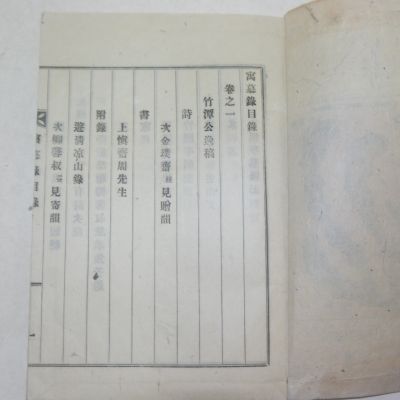 寓慕錄目錄
卷之一
竹潭公逸稿
詩
次金璞齋 見贈韻
書
上愼齋周先生
附錄
遊淸凉山錄
次 叔 見寄韻
寓慕錄目錄
一